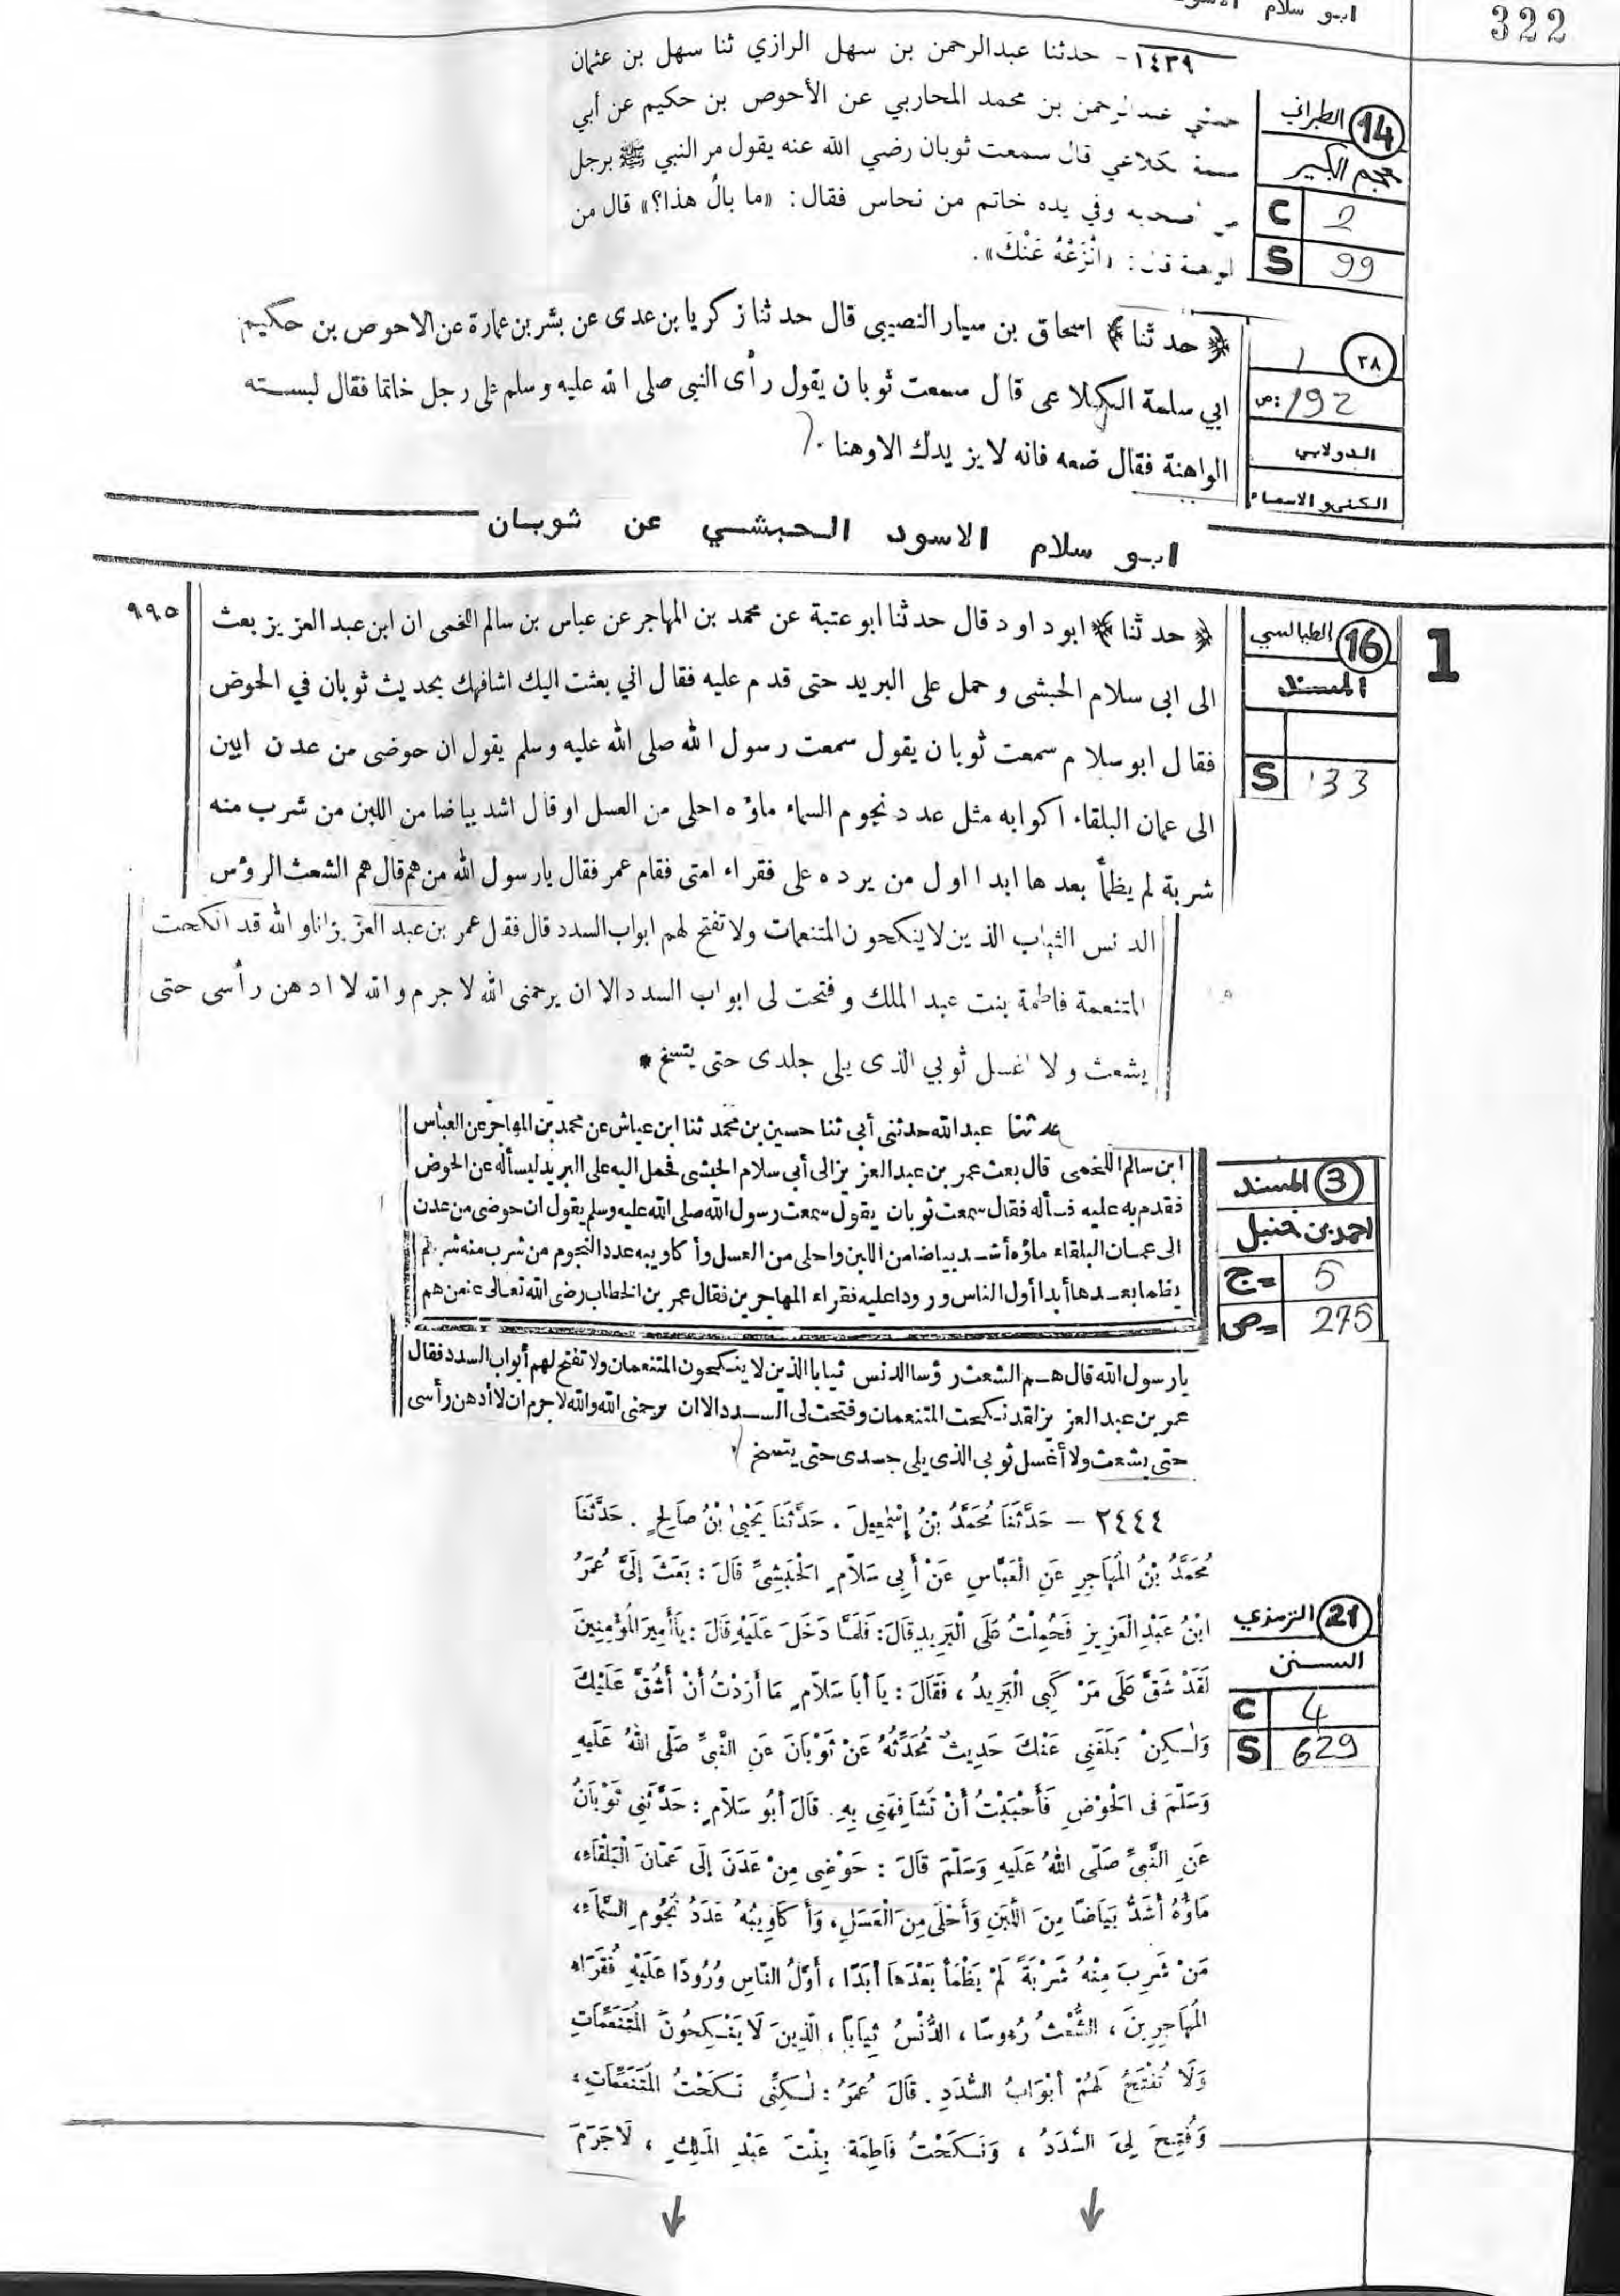 ابو سلام
322
١٤٣٩- حدثنا عبدالرحمن بن سهل الرازي ثنا سهل بن عثمان
عبدالرحمن بن محمد المحاربي عن الأحوص بن حكيم عن أبي
قال سمعت ثوبان رضي الله عنه يقول مر النبي ﷺ برجل
وفي يده خاتم من نحاس فقال: «ما بالُ هذا؟» قال من
«انْزَعْهُ عَنْكَ».
14 الطبراني
معجم الكبير
C 2
S 99
﴿حدثنا﴾ اسحاق بن سيار النصيبى قال حدثنا زكريا بن عدى عن بشر بن عمارة عن الاحوص بن حكيم
ابي سلمة الكلاعى قال سمعت ثوبان يقول رأى النبى صلى الله عليه وسلم على رجل خاتما فقال لبسته
الواهنة فقال ضعه فانه لا يزيدك الا وهنا
٣٨ 1
ص: 192
الدولابي
الكنى و الاسماء
ابو سلام الاسود الحبشي عن ثوبان
1
16 الطيالسي
المسند
S 133
٩٩٥
﴿حدثنا﴾ ابو داود قال حدثنا ابو عتبة عن محمد بن المهاجر عن عباس بن سالم اللخمى ان ابن عبد العزيز بعث
الى ابى سلام الحبشى وحمل على البريد حتى قدم عليه فقال اني بعثت اليك اشافهك بحديث ثوبان في الحوض
فقال ابو سلام سمعت ثوبان يقول سمعت رسول الله صلى الله عليه وسلم يقول ان حوضى من عدن ابين
الى عمان البلقاء اكوابه مثل عدد نجوم السماء ماؤه احلى من العسل او قال اشد بياضا من اللبن من شرب منه
شربة لم يظمأ بعدها ابدا اول من يرده على فقراء امتى فقام عمر فقال يا رسول الله من هم قال هم الشعث الرؤس
الدنس الثياب الذين لا ينكحون المتنعمات ولا تفتح لهم ابواب السدد قال فقال عمر بن عبد العزيز انا و الله قد انكحت
المتنعمة فاطمة بنت عبد الملك وفتحت لى ابواب السدد الا ان يرحمنى الله لا جرم والله لا ادهن رأسى حتى
يشعث ولا اغسل ثوبي الذى يلى جلدى حتى يتسخ *
حدثنا عبدالله حدثنى أبى ثنا حسين بن محمد ثنا ابن عياش عن محمد بن المهاجر عن العباس
ابن سالم اللخمى قال بعث عمر بن عبد العزيز الى أبى سلام الحبشى فحمل اليه على البريد ليسأله عن الحوض
فقدم به عليه فسأله فقال سمعت ثوبان يقول سمعت رسول الله صلى الله عليه وسلم يقول ان حوضى من عدن
الى عمان البلقاء ماؤه أشد بياضا من اللبن واحلى من العسل وأكاويبه عدد النجوم من شرب منه شربة لم
يظما بعدها أبدا أول الناس ورودا عليه فقراء المهاجرين فقال عمر بن الخطاب رضى الله تعالى عنه من هم
يا رسول الله قال هم الشعث رؤسا الدنس ثيابا الذين لا ينكحون المتنعمات ولا تفتح لهم أبواب السدد فقال
عمر بن عبد العزيز لقد نكحت المتنعمات وفتحت لى السدد الا ان يرحمنى الله والله لا جرم ان لا أدهن رأسى
حتى يشعث ولا أغسل ثوبى الذى يلى جسدى حتى يتسخ
3 المسند
احمد بن حنبل
ج= 5
ص= 275
٢٤٤٤ – حَدَّثَنَا مُحَمَّدُ بْنُ إِسْمٰعِيلَ . حَدَّثَنَا يَحْيَى بْنُ صَالِحٍ . حَدَّثَنَا
مُحَمَّدُ بْنُ الْمُهَاجِرِ عَنِ الْعَبَّاسِ عَنْ أَبِى سَلاَّمٍ الْحَبَشِىِّ قَالَ : بَعَثَ إِلَىَّ عُمَرُ
ابْنُ عَبْدِ الْعَزِيزِ فَحُمِلْتُ عَلَى الْبَرِيدِ قَالَ : فَلَمَّا دَخَلَ عَلَيْهِ قَالَ : يَا أَمِيرَ الْمُؤْمِنِينَ
لَقَدْ شَقَّ عَلَى مَرْكَبِى الْبَرِيدُ ، فَقَالَ : يَا أَبَا سَلاَّمٍ مَا أَرَدْتُ أَنْ أَشُقَّ عَلَيْكَ
وَلٰكِنْ بَلَغَنِى عَنْكَ حَدِيثٌ تُحَدِّثُهُ عَنْ ثَوْبَانَ عَنِ النَّبِىِّ صَلَّى اللهُ عَلَيْهِ
وَسَلَّمَ فِى الْحَوْضِ فَأَحْبَبْتُ أَنْ تُشَافِهَنِى بِهِ. قَالَ أَبُو سَلاَّمٍ : حَدَّثَنِى ثَوْبَانُ
عَنِ النَّبِىِّ صَلَّى اللهُ عَلَيْهِ وَسَلَّمَ قَالَ : حَوْضِى مِنْ عَدَنَ إِلَى عَمَّانَ الْبَلْقَاءِ ،
مَاؤُهُ أَشَدُّ بَيَاضًا مِنَ اللَّبَنِ وَأَحْلَى مِنَ الْعَسَلِ ، وَأَكَاوِيبُهُ عَدَدُ نُجُومِ السَّمَاءِ ،
مَنْ شَرِبَ مِنْهُ شَرْبَةً لَمْ يَظْمَأْ بَعْدَهَا أَبَدًا ، أَوَّلُ النَّاسِ وُرُودًا عَلَيْهِ فُقَرَاءُ
الْمُهَاجِرِينَ ، الشُّعْثُ رُءُوسًا ، الدُّنْسُ ثِيَابًا ، الَّذِينَ لاَ يَنْكِحُونَ الْمُتَنَعِّمَاتِ
وَلَا تُفْتَحُ لَهُمْ أَبْوَابُ السُّدَدِ . قَالَ عُمَرُ : لٰكِنِّى نَكَحْتُ الْمُتَنَعِّمَاتِ ،
وَفُتِحَ لِىَ السُّدَدُ ، وَنَكَحْتُ فَاطِمَةَ بِنْتَ عَبْدِ الْمَلِكِ ، لَا جَرَمَ
21 الترمذي
السنن
C 4
S 629